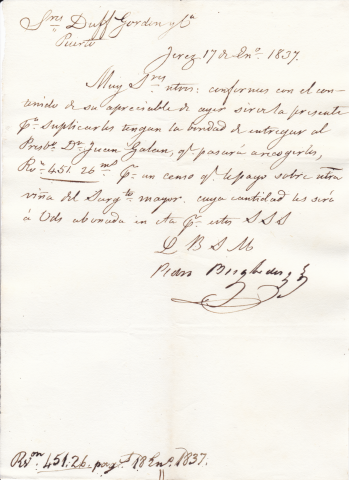 Sres Duff Gordon y Ca
Puerto
Jerez 17 de Eno. 1837.
Muy Sres ntros: conformes con el con-
tenido de su apreciable de ayer sirve la presente
Pa. suplicarles tengan la bondad de entregar al
Presbo. Dn. Juan Galan, qe. pasará a recogerlos,
Rvn. 451. 26 ms Pr. un censo qe. le pago sobre ntra
viña del Sargto mayor, cuya cantidad les será
á Uds abonada en cta Pr. estos S S S
L B S M
Pedro
Rvon. 451. 26. pagos 18 Eno. 1837.